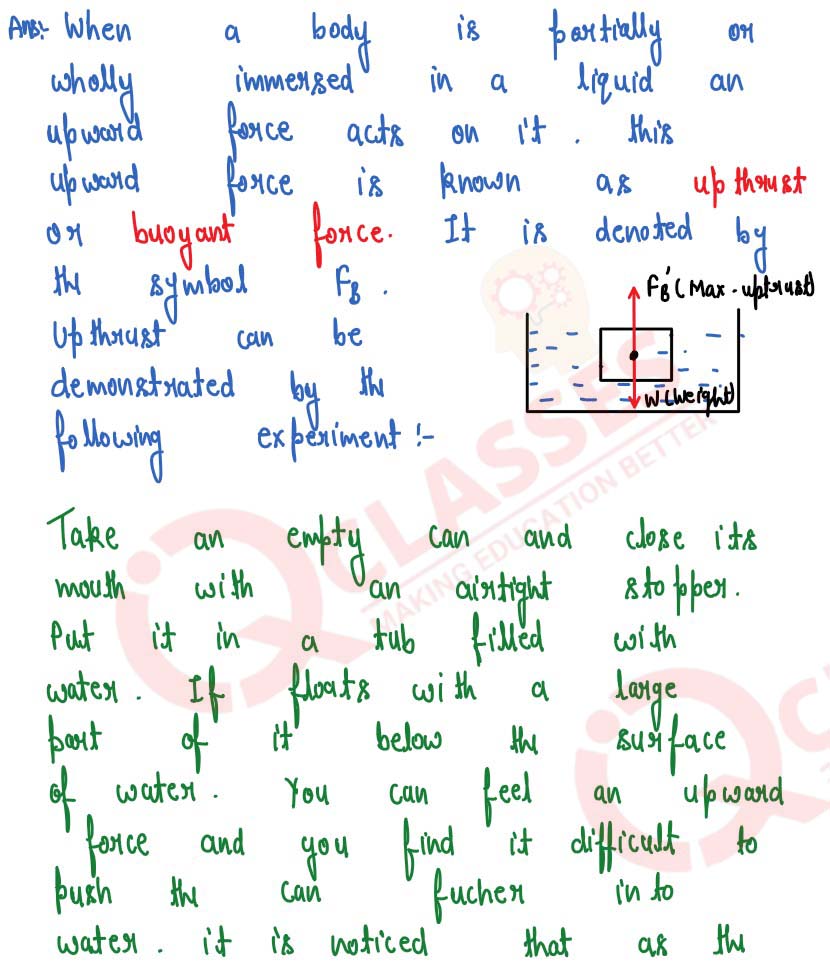 Ans:- When a body is partially or
wholly immersed in a liquid an
upward force acts on it. this
upward force is known as upthrust
or buoyant force. It is denoted by
the symbol FB.
FB' (Max. uptrust)
Upthrust can be
demonstrated by the
W (Weight)
following experiment :-
Take an empty can and close its
mouth with an airtight stopper.
Put it in a tub filled with
water. If floats with a large
part of it below the surface
of water. You can feel an upward
force and you find it difficult to
push the can fucher in to
water. it is noticed that as the
iQ CLASSES
MAKING EDUCATION BETTER